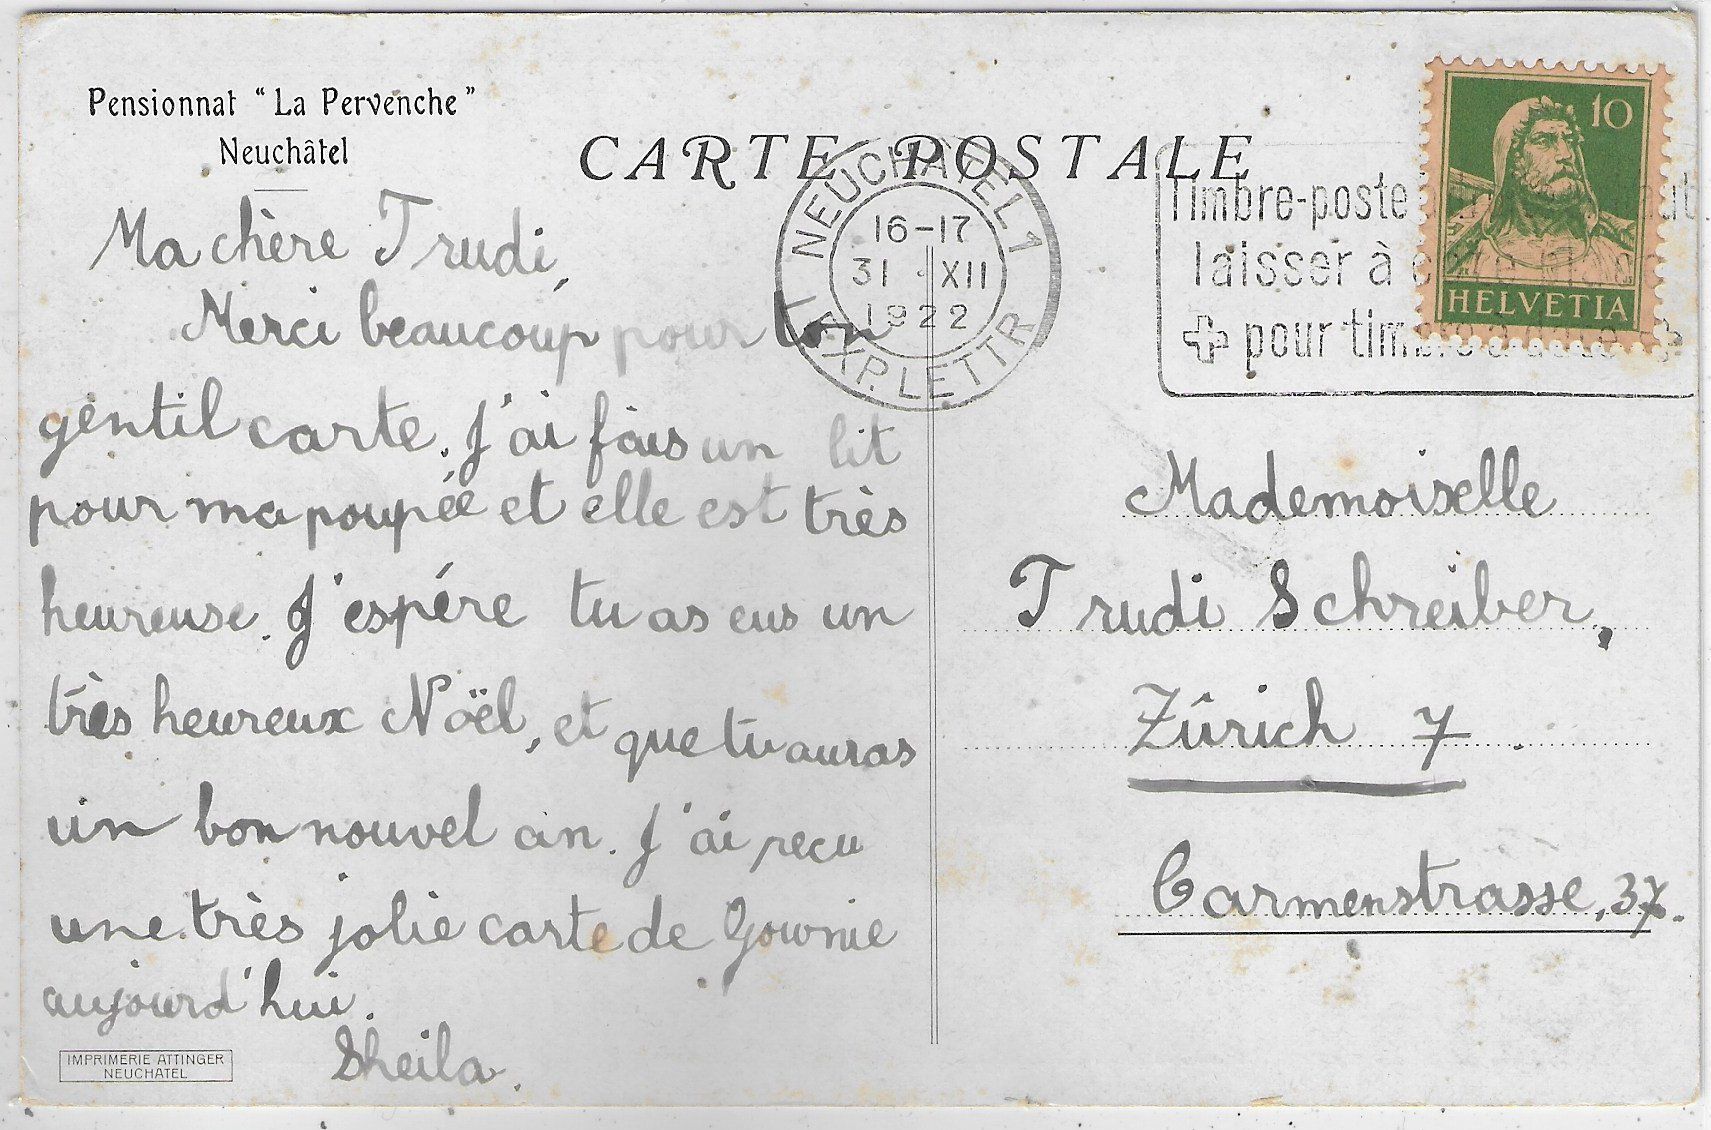 Pensionnat “La Pervenche”
Neuchâtel
CARTE POSTALE
NEUCHÂTEL 1
16-17
31 XII
1922
EXP. LETTR
Timbre-poste
laisser à
pour timbre à date
10
HELVETIA
Ma chère Trudi,
Merci beaucoup pour ton
gentil carte. J'ai fais un lit
pour ma poupée et elle est très
heureuse. J'espére tu as eus un
très heureux Nöel, et que tu auras
un bon nouvel an. J'ai reçu
une très jolie carte de
aujourd'hui.
Sheila.
Mademoiselle
Trudi Schreiber,
Zürich 7.
Carmenstrasse, 37.
IMPRIMERIE ATTINGER
NEUCHATEL